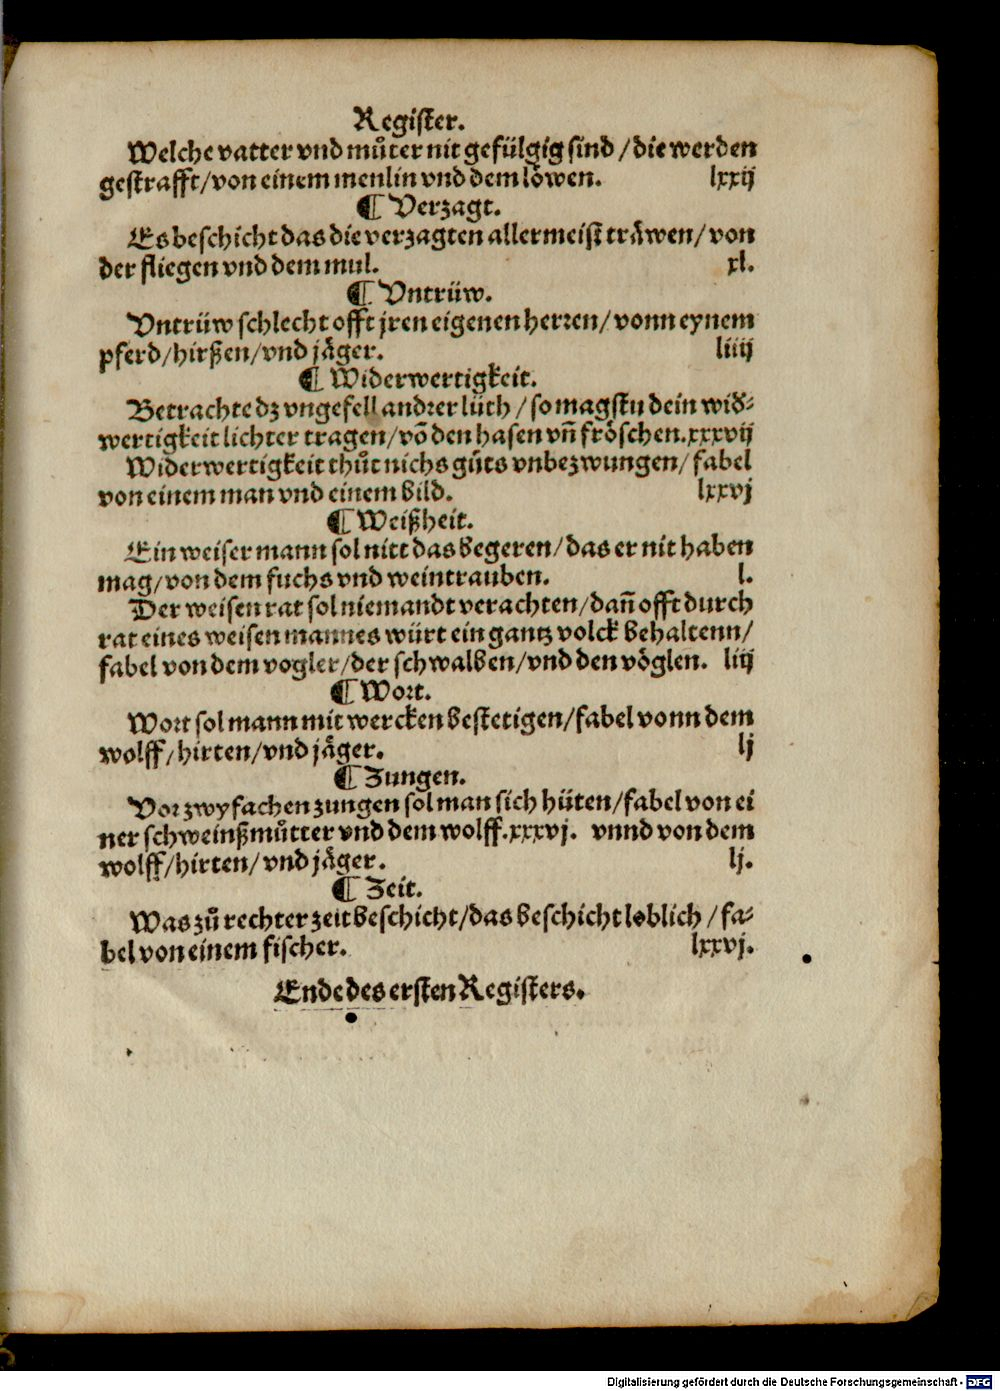 Register.
Welche vatter vnd můter nit gefülgig sind / die werden
gestrafft/von einem menlin vnd dem löwen. lxxij
¶ Verzagt.
Es beschicht das die verzagten allermeist träwen/ von
der fliegen vnd dem mul. xl.
¶ Vntrüw.
Vntrüw schlecht offt jren eigenen herren/ vonn eynem
pferd/hirßen/vnd jäger. liiij
¶ Widerwertigkeit.
Betrachte dz vngefell andrer lüth / so magstu dein wid⸗
wertigkeit lichter tragen/võ den hasen vñ fröschen.xxxvij
Widerwertigkeit thůt nichs gůts vnbezwungen/ fabel
von einem man vnd einem bild. lxxvj
¶ Weißheit.
Ein weiser mann sol nitt das begeren/das er nit haben
mag/von dem fuchs vnd weintrauben. l.
Der weisen rat sol niemandt verachten/dañ offt durch
rat eines weisen mannes würt ein gantz volck behaltenn/
fabel von dem vogler/der schwalben/vnd den vöglen. liij
¶ Wort.
Wort sol mann mit wercken bestetigen/fabel vonn dem
wolff/hirten/vnd jäger. lj
¶ Zungen.
Vor zwyfachen zungen sol man sich hüten/fabel von ei
ner schweinßmůtter vnd dem wolff.xxxvj. vnnd von dem
wolff/hirten/vnd jäger. lj.
¶ Zeit.
Was zů rechter zeit beschicht/das beschicht loblich / fa⸗
bel von einem fischer. lxxvj.
Ende des ersten Registers.
Digitalisierung gefördert durch die Deutsche Forschungsgemeinschaft - DFG